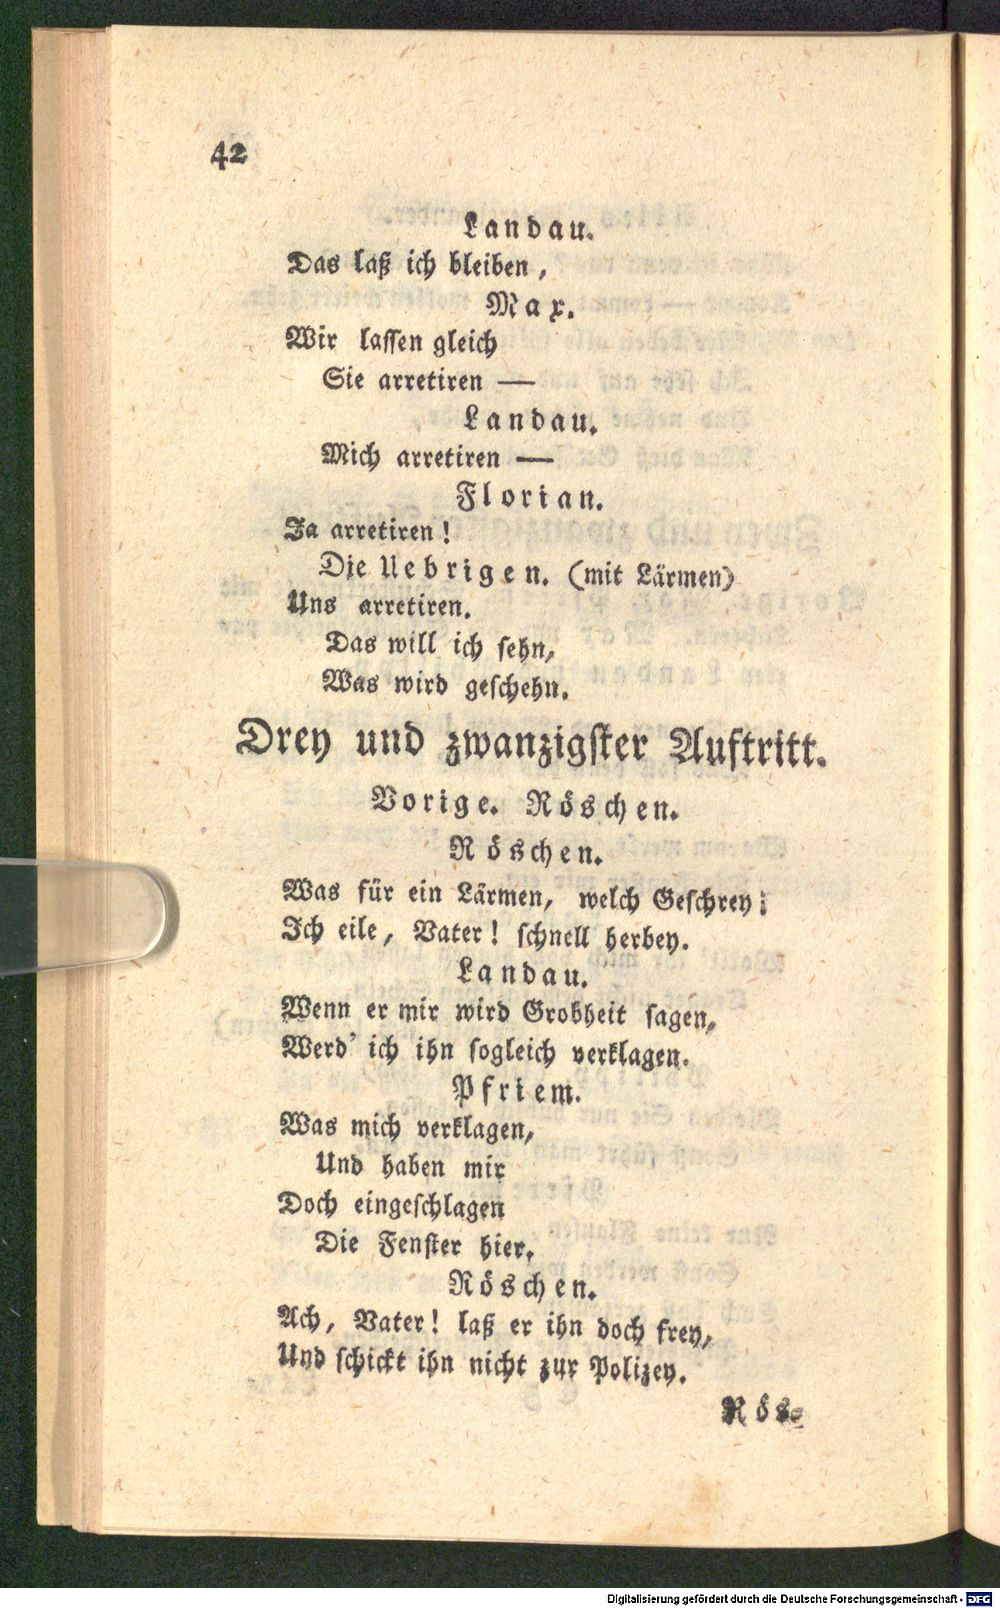 42
Landau.
Das laß ich bleiben,
Max.
Wir lassen gleich
Sie arretiren —
Landau.
Mich arretiren —
Florian.
Ja arretiren!
Die Uebrigen. (mit Lärmen)
Uns arretiren.
Das will ich sehn,
Was wird geschehn.
Drey und zwanzigster Auftritt.
Vorige. Röschen.
Röschen.
Was für ein Lärmen, welch Geschrey;
Ich eile, Vater! schnell herbey.
Landau.
Wenn er mir wird Grobheit sagen,
Werd' ich ihn sogleich verklagen.
Pfriem.
Was mich verklagen,
Und haben mir
Doch eingeschlagen
Die Fenster hier.
Röschen.
Ach, Vater! laß er ihn doch frey,
Und schickt ihn nicht zur Polizey.
Rös-
Digitalisierung gefördert durch die Deutsche Forschungsgemeinschaft - DFG